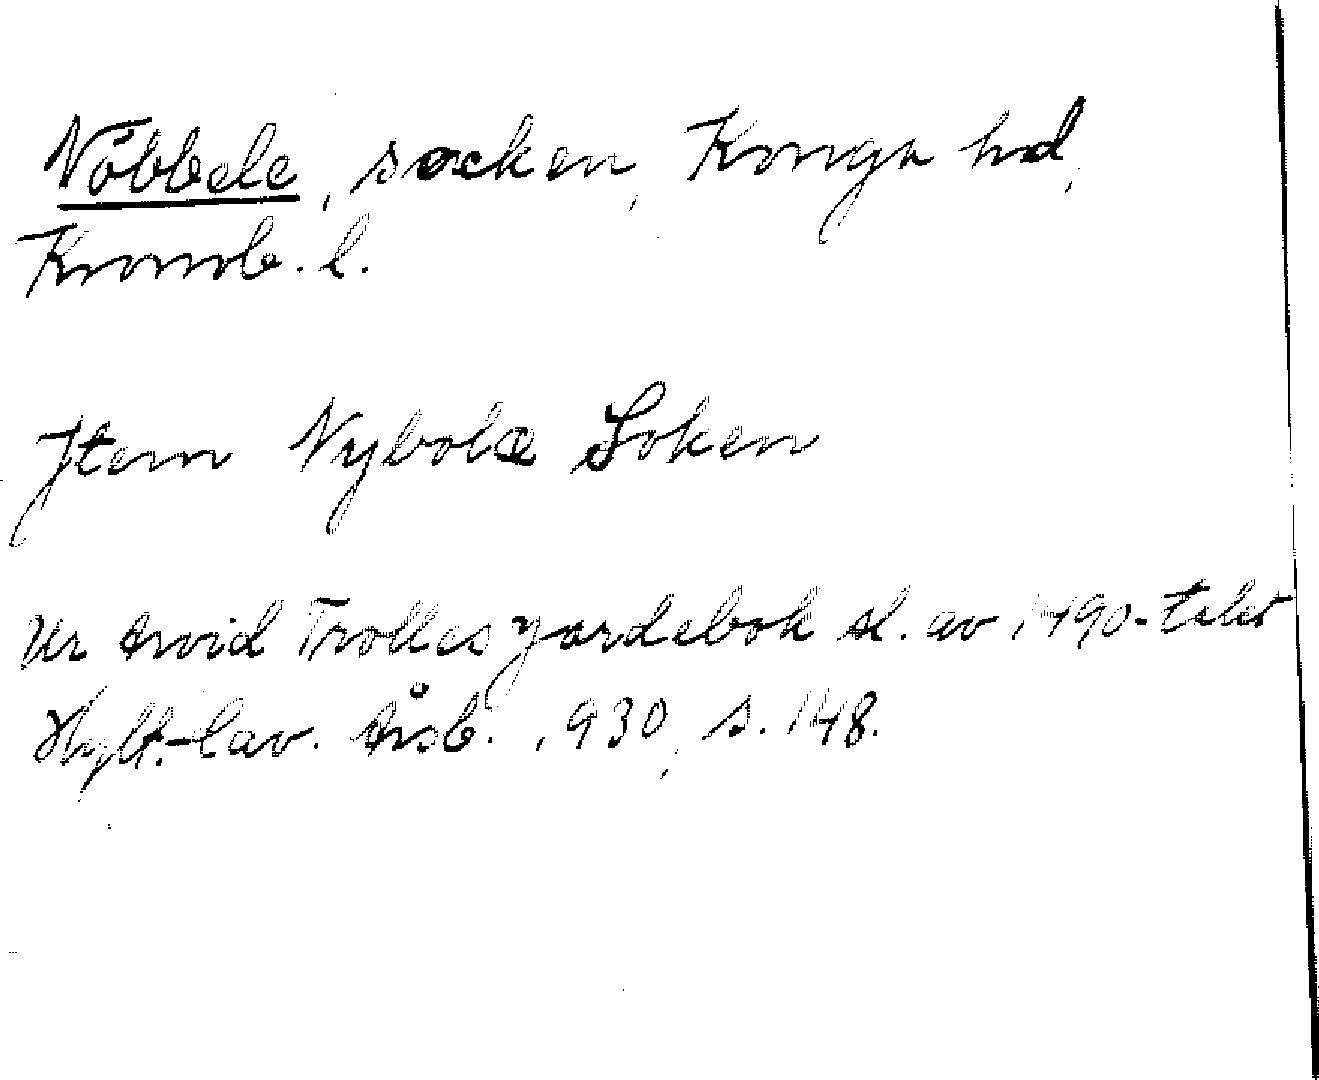 Nöbbele, socken, Konga hd,
Kronob. l.
Jtem Nybolæ Soken
Ur Arvid Trolles jordebok sl. av 1490-talet
Hylt.-Cav. Årsb. 1930, s. 148.